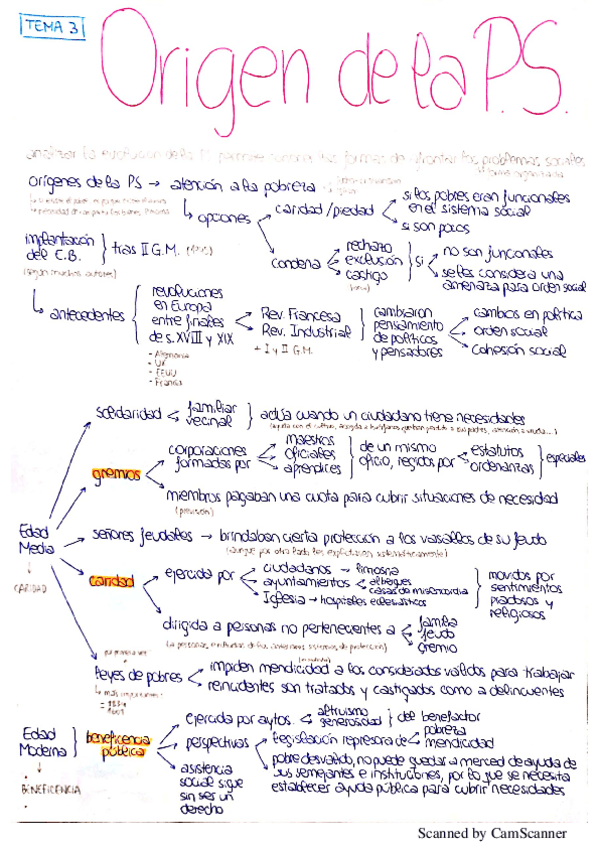 TEMA 3
Origen de la P.S.
analizar la evolución de la PS permite conocer las formas de afrontar los problemas sociales
orígenes de la PS → atención a la pobreza
opciones
caridad/piedad
si los pobres eran funcionales
en el sistema social
si son pocos
condena
rechazo
exclusión
castigo
si
no son funcionales
se les considera una
amenaza para orden social
implantación
del E.B.
tras II G.M.
(según muchos autores)
antecedentes
revoluciones
en Europa
entre finales
de s. XVIII y XIX
- Alemania
- UK
- EEUU
- Francia
Rev. Francesa
Rev. Industrial
+ I y II G.M.
cambiaron
pensamiento
de políticos
y pensadores
cambios en política
orden social
cohesión social
Edad
Media
↓
CARIDAD
solidaridad
familiar
vecinal
actúa cuando un ciudadano tiene necesidades
gremios
corporaciones
formadas por
maestros
oficiales
aprendices
de un mismo
oficio, regidos por
estatutos
ordenanzas
especiales
miembros pagaban una cuota para cubrir situaciones de necesidad
(previsión)
señores feudales → brindaban cierta protección a los vasallos de su feudo
(aunque por otro lado les explotaban sistemáticamente)
caridad
ejercida por
ciudadanos → limosna
ayuntamientos
albergues
casas de misericordia
Iglesia → hospitales eclesiásticos
movidos por
sentimientos
piadosos y
religiosos
dirigida a personas no pertenecientes a
familia
feudo
gremio
leyes de pobres
impiden mendicidad a los considerados válidos para trabajar
reincidentes son tratados y castigados como a delincuentes
+ más importantes
Edad
Moderna
↓
BENEFICENCIA
beneficencia
pública
ejercida por aytos.
altruismo
generosidad
del benefactor
perspectivas
legislación represora de
pobreza
mendicidad
pobre desvalido, no puede quedar a merced de ayuda de
sus semejantes e instituciones, por lo que se necesita
establecer ayuda pública para cubrir necesidades
asistencia
social sigue
sin ser un
derecho
Scanned by CamScanner